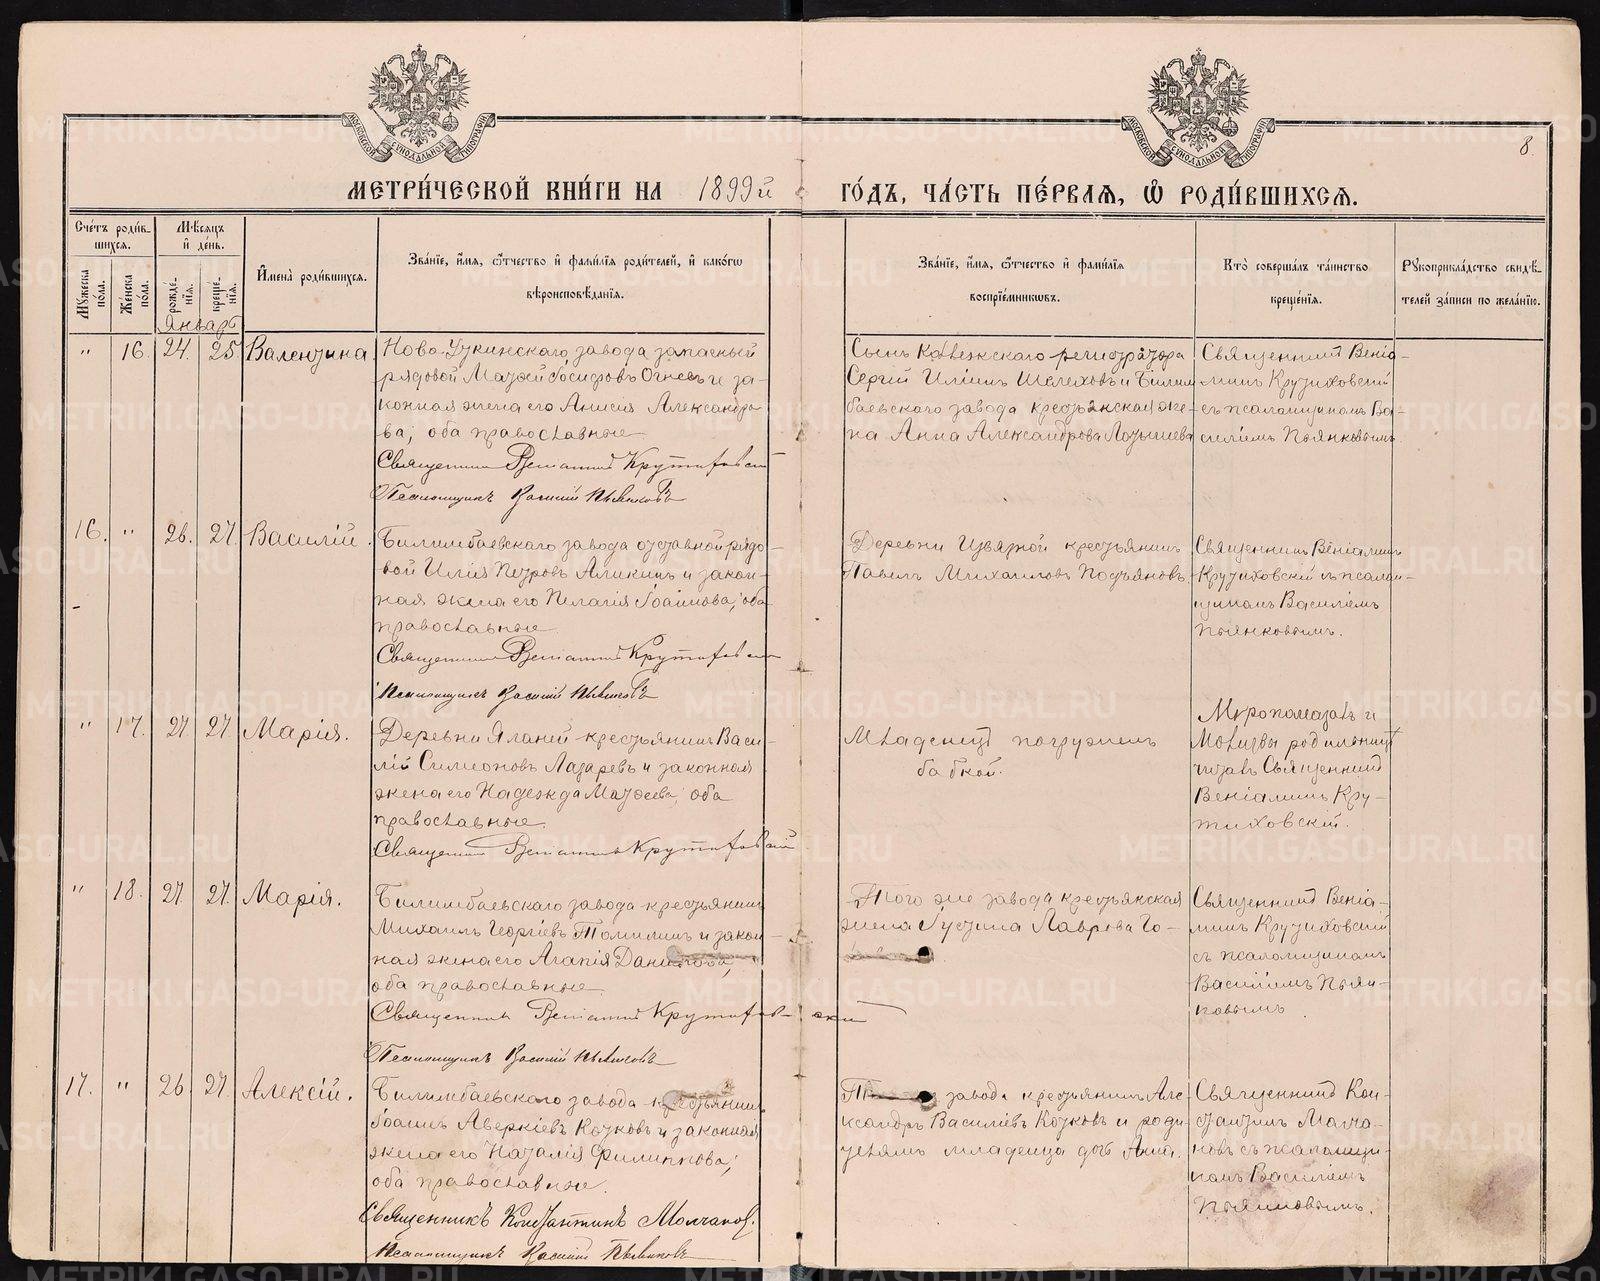 МОСКОВСКОЙ СУНОДАЛЬНОЙ ТИПОГРАФІИ
МОСКОВСКОЙ СУНОДАЛЬНОЙ ТИПОГРАФІИ
8.
МЕТРИ́ЧЕСКОЙ КНИ́ГИ НА 1899й ГО́ДЪ, ЧА́СТЬ ПЕ́РВАѦ, Ѡ҆ РОДИ́ВШИХСѦ.
Сче́тъ роди́в-
шихся.
Мѣ́сяцъ
и҆ де́нь.
И҆мена̀ роди́вшихся.
Зва́нїе, и҆́мя, ѻ҆́тчество и҆ фами́лїя роди́телей, и҆ како́гѡ
вѣроисповѣ́данїя.
Зва́нїе, и҆́мя, ѻ҆́тчество и҆ фами́лїя
воспрїе́мникѡвъ.
Кто̀ соверша́лъ та́инство
креще́нїя.
Рꙋкоприкла́дство свидѣ́-
телей за́писи по жела́нїю.
Мꙋ́жеска по́ла.
Же́нска по́ла.
рожде́-нїя.
креще́-нїя.
Январь
" 16. 24. 25. Валентина.
Ново-Уткинскаго завода запасный
рядовой Матѳей Іосифовъ Огневъ и за-
конная жена его Анисія Александро
ва; оба православные
Священникъ Веніаминъ Крутиховскій
Псаломщикъ Василій Пьянковъ
Сынъ Коллежскаго регистратора
Сергій Иліинъ Шелеховъ и Билим
баевскаго завода крестьянская же-
на Анна Александрова
Священникъ Веніа-
минъ Крутиховскій
съ псаломщикомъ Ва-
силіемъ Пьянковымъ.
16. " 26. 27. Василій.
Билимбаевскаго завода отставной рядо-
вой Илія Петровъ Аликинъ и закон-
ная жена его Пелагія Іоаннова; оба
православные
Священникъ Веніаминъ Крутиховскій
Псаломщикъ Василій Пьянковъ
Деревни крестьянинъ
Павелъ Михаиловъ
Священникъ Веніаминъ
Крутиховскій съ псалом-
щикомъ Василіемъ
Пьянковымъ.
" 17. 27. 27. Марія.
Деревни крестьянинъ Васи-
лій Симеоновъ Лазаревъ и законная
жена его Надежда Матѳеева; оба
православные.
Священникъ Веніаминъ Крутиховскій
Младенецъ погруженъ
бабкой.
Мѵропомазалъ и
молитвы родильницѣ
читалъ Священникъ
Веніаминъ Кру-
тиховскій.
" 18. 27. 27. Марія.
Билимбаевскаго завода крестьянинъ
Михаилъ Георгіевъ Томилинъ и закон-
ная жена его Агапія Данилова,
оба православные.
Священникъ Веніаминъ Крутиховскій
Псаломщикъ Василій Пьянковъ
Того же завода крестьянская
жена Іустина Лаврова
Священникъ Веніа-
минъ Крутиховскій
съ псаломщикомъ
Василіемъ Пьян-
ковымъ.
17. " 26. 27. Алексій.
Билимбаевскаго завода крестьянинъ
Іоаннъ Аверкіевъ Котковъ и законная
жена его Наталія Филиппова;
оба православные.
Священникъ Константинъ Молчановъ.
Псаломщикъ Василій Пьянковъ
завода крестьянинъ Але-
ксандръ Василіевъ Котковъ и роди-
телямъ младенца дочь Анна.
Священникъ Кон-
стантинъ Молча-
новъ съ псаломщи-
комъ Василіемъ
Пьянковымъ.
METRIKI.GASO-URAL.RU